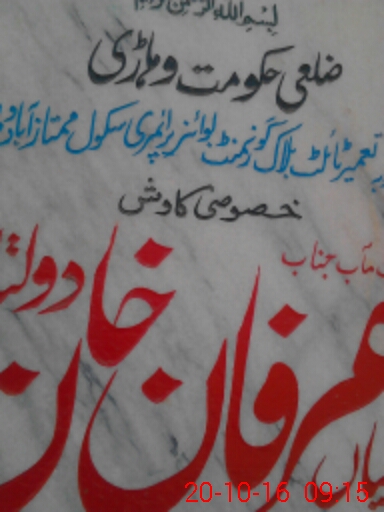 بسم الله الرحمن الرحیم
ضلعی حکومت وہاڑی
تعمیر ٹائلٹ بلاک گورنمنٹ بوائز پرائمری سکول ممتاز آباد
خصوصی کاوش
مآب جناب
میاں عرفان خان
20-10-16 09:15